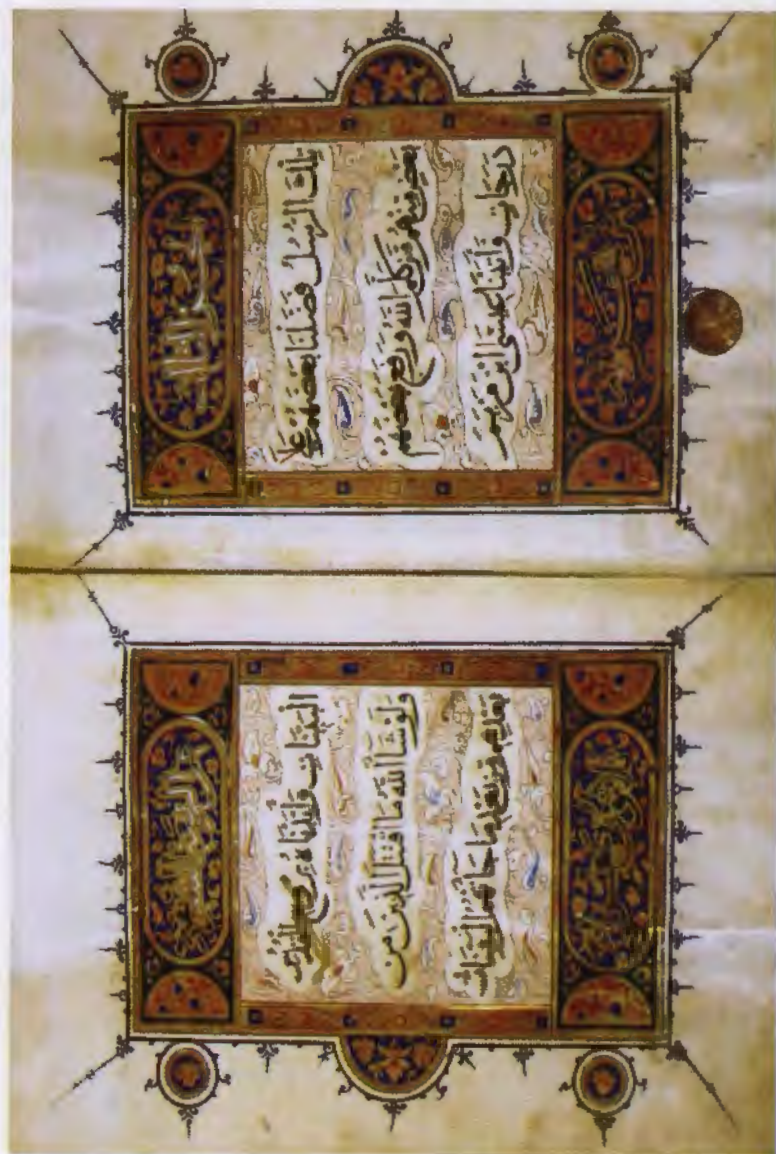 الجزء الثالث
تِلْكَ الرُّسُلُ فَضَّلْنَا بَعْضَهُمْ عَلَىٰ
بَعْضٍ مِنْهُمْ مَنْ كَلَّمَ اللَّهُ وَرَفَعَ بَعْضَهُمْ
دَرَجَاتٍ وَآتَيْنَا عِيسَى ابْنَ مَرْيَمَ
الْبَيِّنَاتِ وَأَيَّدْنَاهُ بِرُوحِ الْقُدُسِ
وَلَوْ شَاءَ اللَّهُ مَا اقْتَتَلَ الَّذِينَ مِنْ
بَعْدِهِمْ مِنْ بَعْدِ مَا جَاءَتْهُمُ الْبَيِّنَاتُ